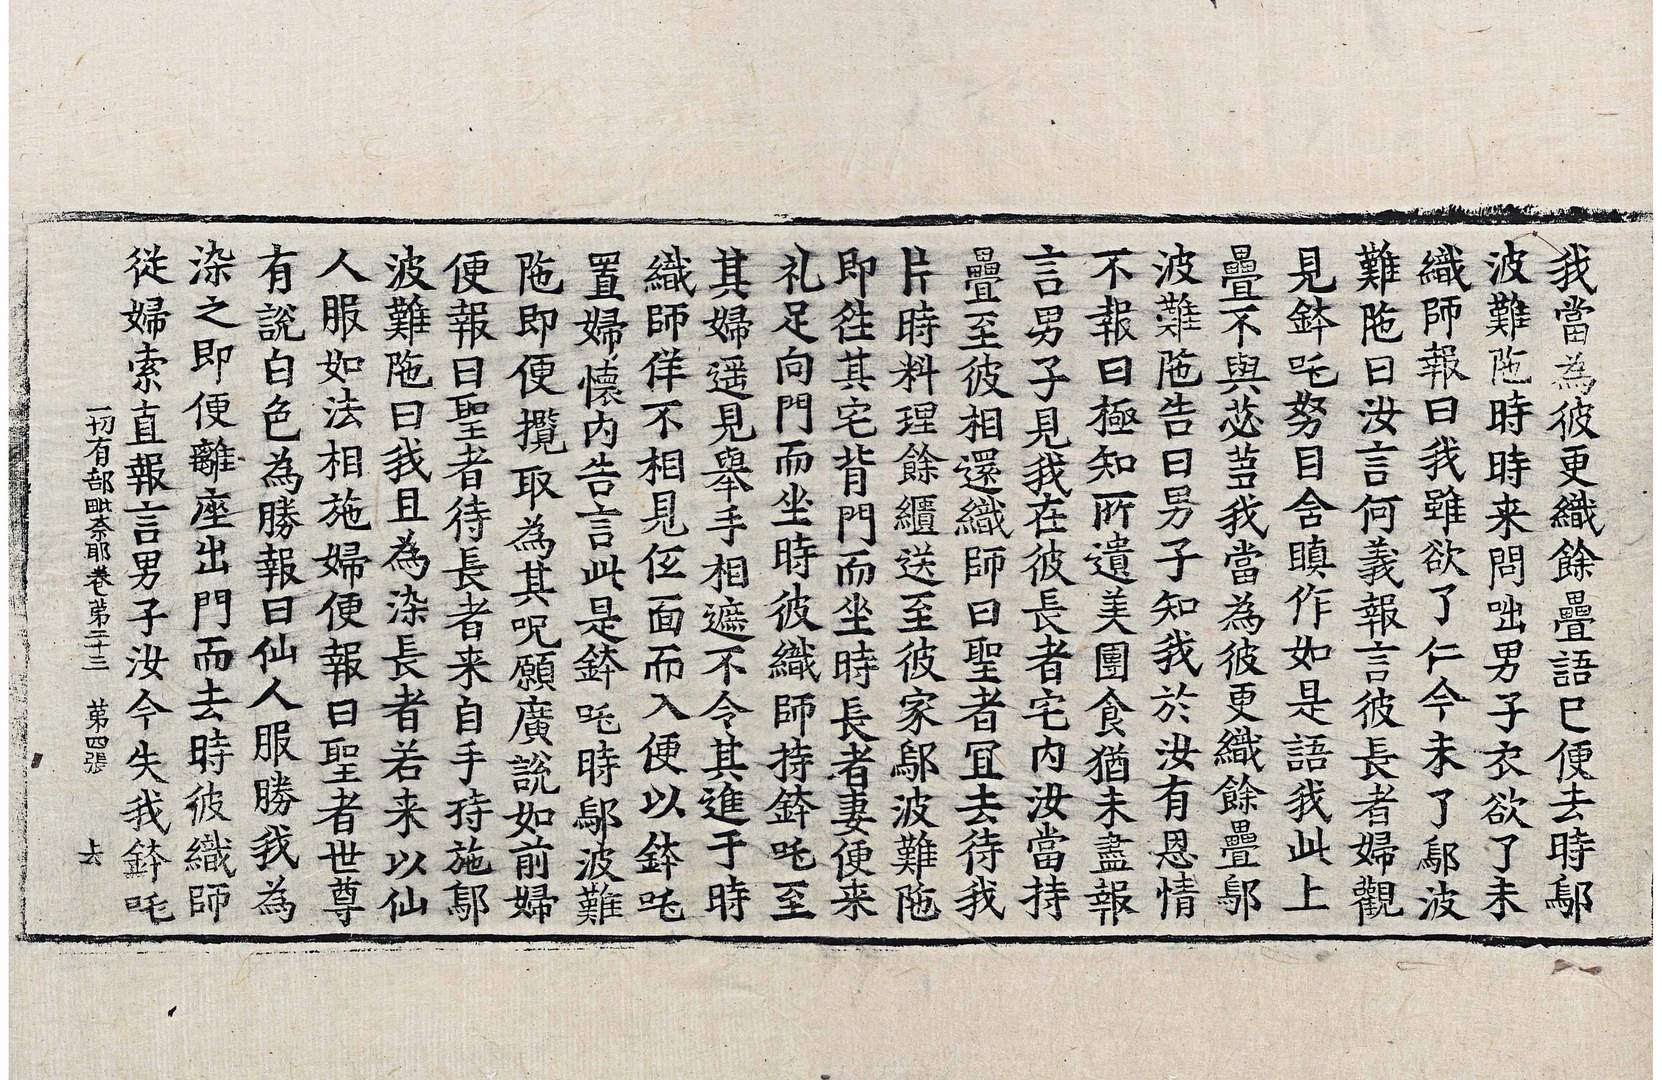 我當為彼更織餘疊語已便去時鄔
波難陁時時来問咄男子衣欲了未
織師報曰我雖欲了仁今未了鄔波
難陁曰汝言何義報言彼長者婦觀
見鉢吒努目含瞋作如是語我此上
疊不與苾芻我當為彼更織餘疊鄔
波難陁告曰男子知我於汝有恩情
不報曰極知所遺美團食猶未盡報
言男子見我在彼長者宅内汝當持
疊至彼相還織師曰聖者冝去待我
片時料理餘纑送至彼家鄔波難陁
即往其宅背門而坐時長者妻便来
礼足向門而坐時彼織師持鉢吒至
其婦遥見舉手相遮不令其進于時
織師佯不相見伍面而入便以鉢吒
置婦懷内告言此是鉢吒時鄔波難
陁即便攬取為其呪願廣說如前婦
便報曰聖者待長者来自手持施鄔
波難陁曰我且為染長者若来以仙
人服如法相施婦便報曰聖者世尊
有說白色為勝報曰仙人服勝我為
染之即便離座出門而去時彼織師
從婦索直報言男子汝今失我鉢吒
一切有部毗柰耶卷第二十三　第四張　上